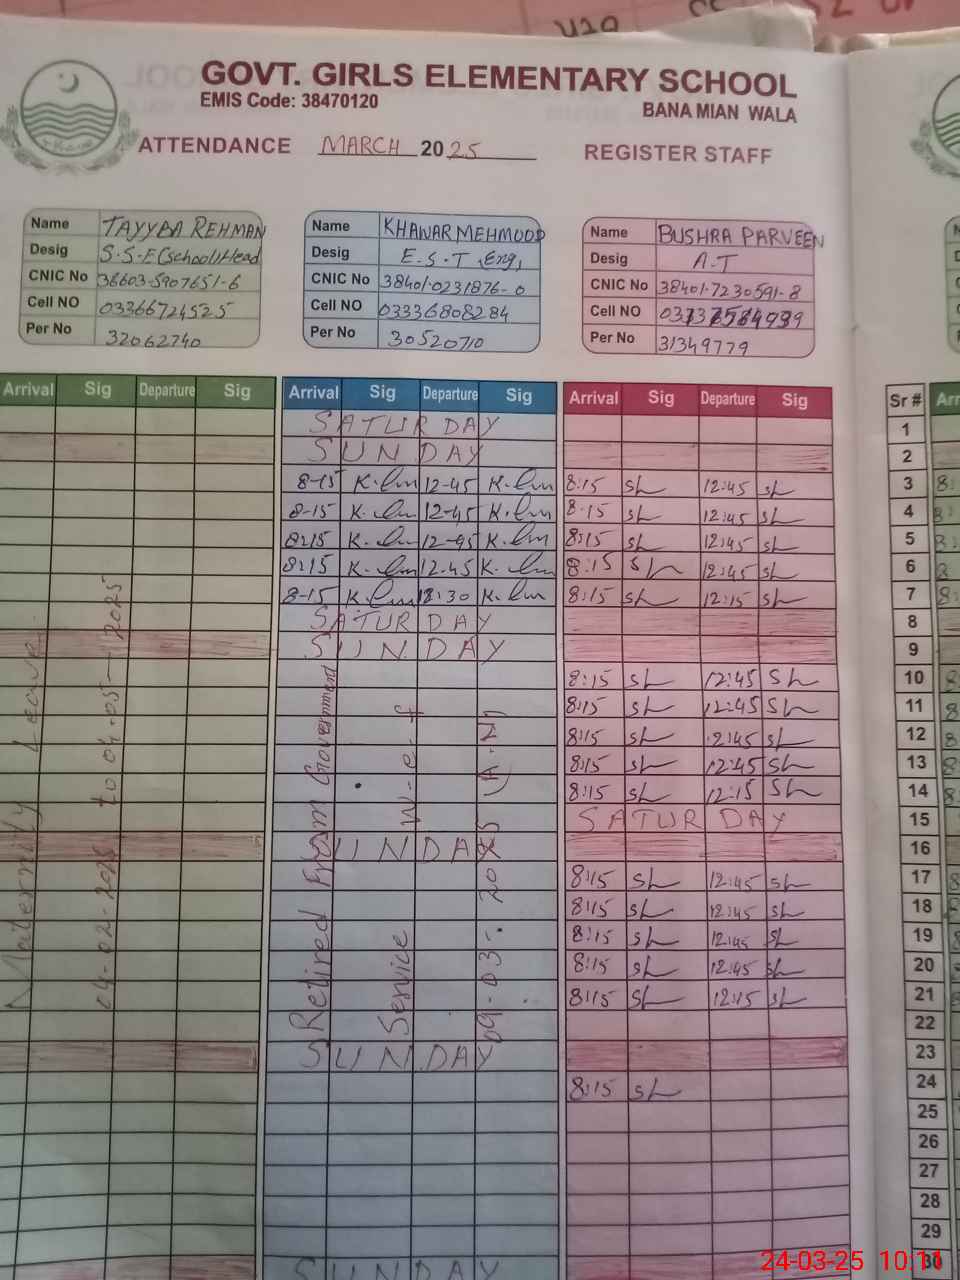 GOVT. GIRLS ELEMENTARY SCHOOL
EMIS Code: 38470120
BANA MIAN WALA
ATTENDANCE MARCH 2025 REGISTER STAFF
Name TAYYBA REHMAN
Desig S.S.E (school) Head
CNIC No 38603-5907651-6
Cell NO 03366724525
Per No 32062740
Name KHAWAR MEHMUDD
Desig E.S.T Eng,
CNIC No 38401-0231876-0
Cell NO 03336808284
Per No 30520710
Name BUSHRA PARVEEN
Desig A.T
CNIC No 38401-7230591-8
Cell NO
Per No 31349779
Arrival Sig Departure Sig
Maternity Leave
04-02-2025 to 04-05-2025
Arrival Sig Departure Sig
SATURDAY
SUNDAY
8-15 12-45
8-15 12-45
8:15 12-45
8:15 12-45
8-15 12:30
SATURDAY
SUNDAY
Retired From Government
Service W-e-f
09-03-2025 (A.N)
SUNDAY
SUNDAY
SUNDAY
Arrival Sig Departure Sig
8:15 12:45
8-15 12:45
8:15 12:45
8:15 12:45
8:15 12:15
8:15 12:45
8:15 12:45
8:15 12:45
8:15 12:45
8:15 12:15
SATURDAY
8:15 12:45
8:15 12:45
8:15 12:45
8:15 12:45
8:15 12:15
8:15
Sr #
1
2
3
4
5
6
7
8
9
10
11
12
13
14
15
16
17
18
19
20
21
22
23
24
25
26
27
28
29
30
24-03-25 10:11